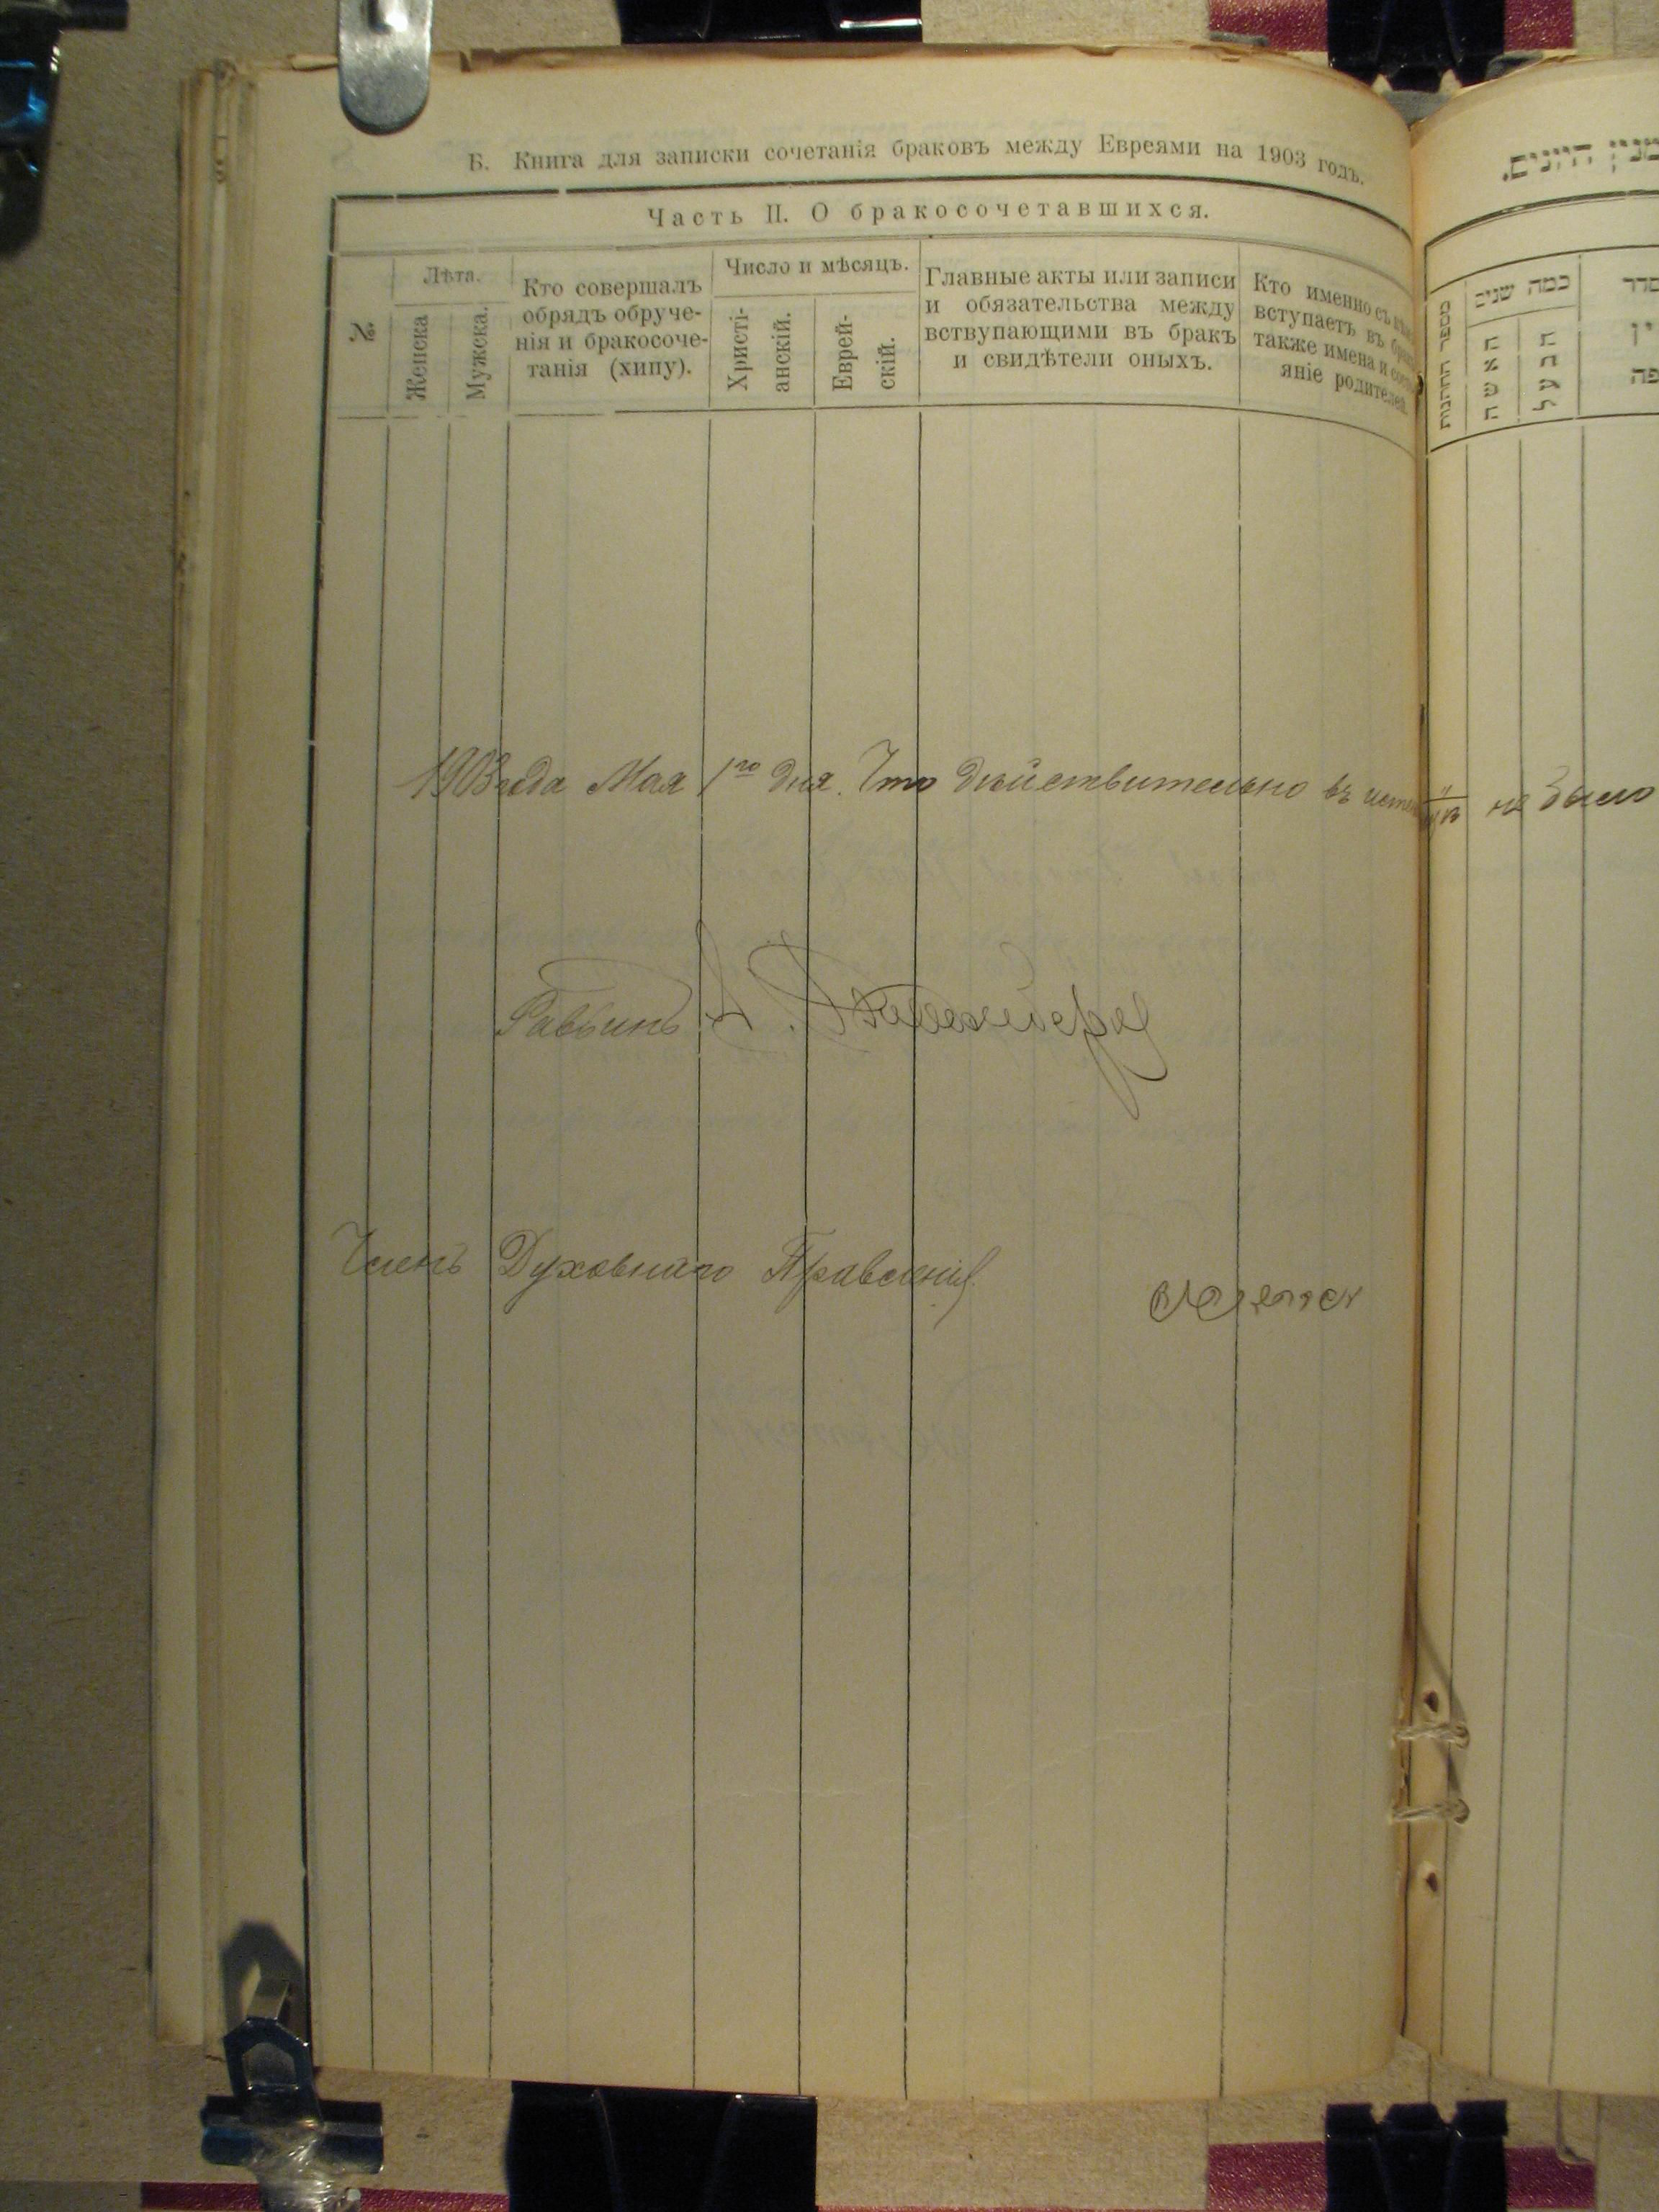 Б. Книга для записки сочетанія браковъ между Евреями на 1903 годъ.
Часть II. О бракосочетавшихся.
№
Лѣта.
Женска
Мужска.
Кто совершалъ
обрядъ обруче-
нія и бракосоче-
танія (хипу).
Число и мѣсяцъ.
Христі-
анскій.
Еврей-
скій.
Главные акты или записи
и обязательства между
вствупающими въ бракъ
и свидѣтели оныхъ.
Кто именно съ
вступаетъ въ
также имена и
яніе родителей.
1903 года Мая 1го дня. Что дѣйствительно въ не было
Раввинъ
Членъ Духовнаго Правленія
מנין היונים.
מספר החתנות
כמה שנים
האשה
הבעל
סדר